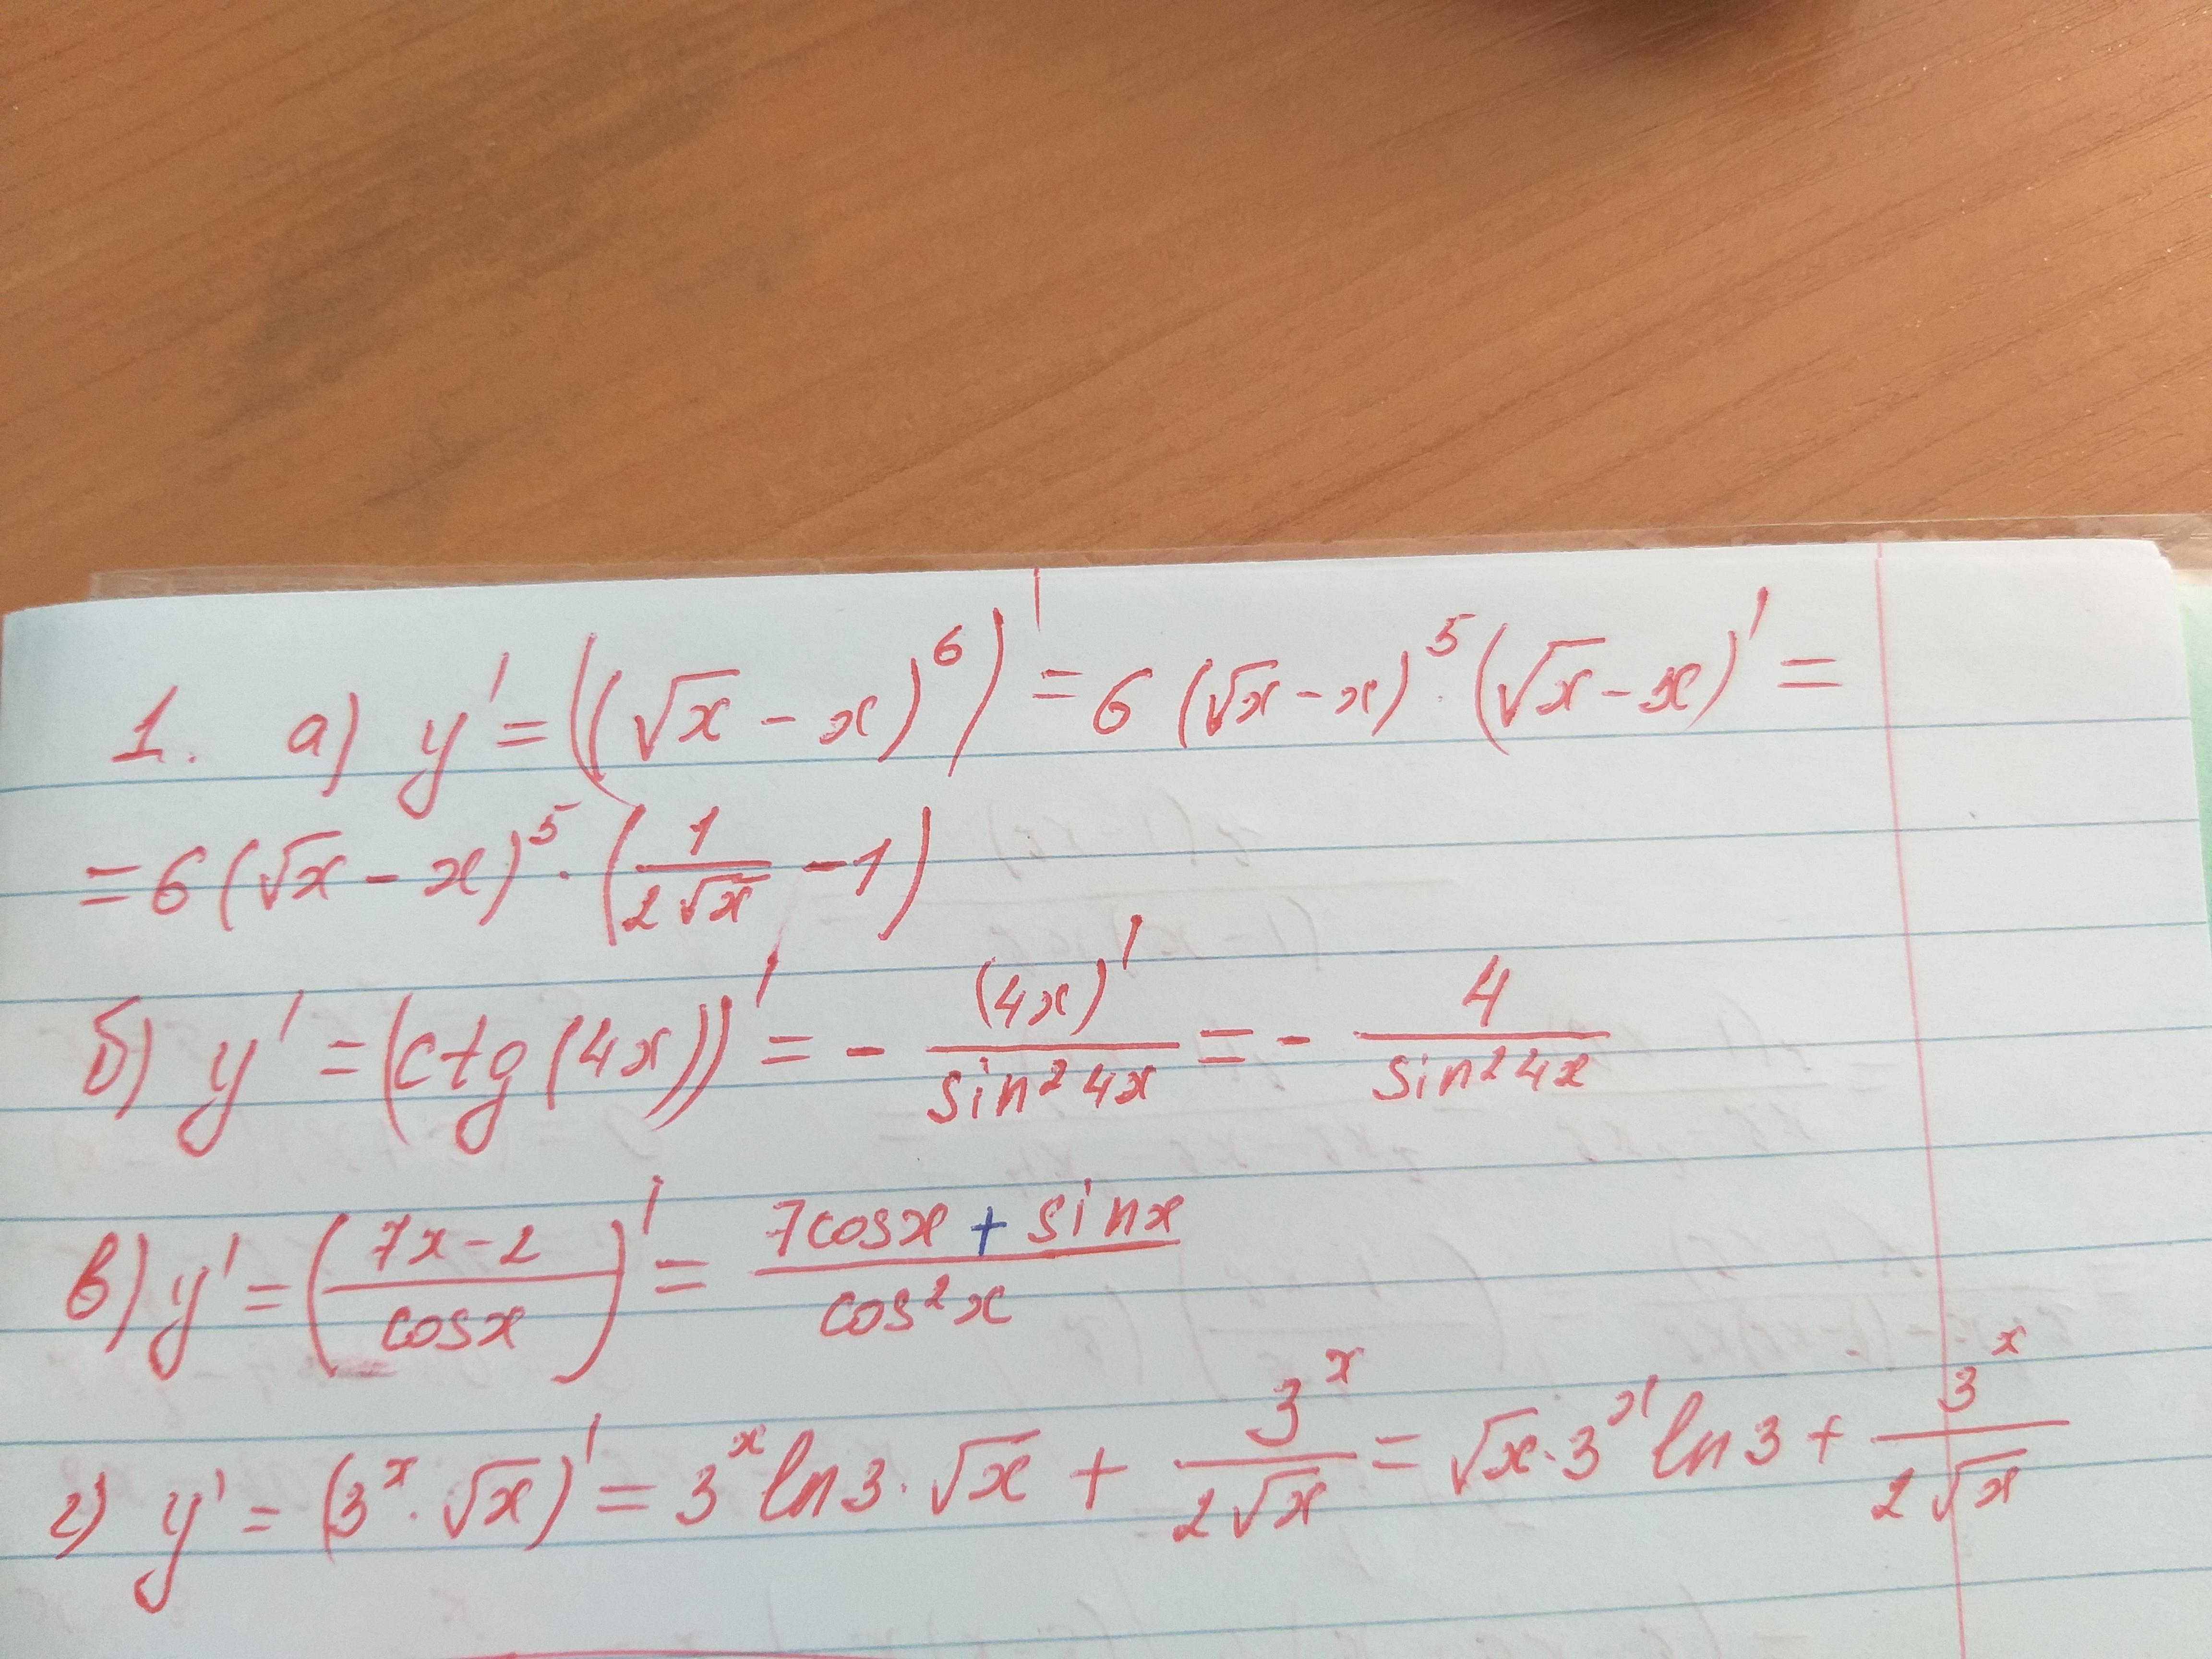 1. а) y' = ((√x - x)⁶)' = 6 (√x - x)⁵ · (√x - x)' =
= 6 (√x - x)⁵ · (1/(2√x) - 1)
б) y' = (ctg (4x))' = - (4x)'/(sin² 4x) = - 4/(sin² 4x)
в) y' = ((7x - 2)/(cosx))' = (7cosx + sinx)/(cos² x)
г) y' = (3ˣ · √x)' = 3ˣ ln3 · √x + 3ˣ/(2√x) = √x · 3ˣ ln3 + 3ˣ/(2√x)